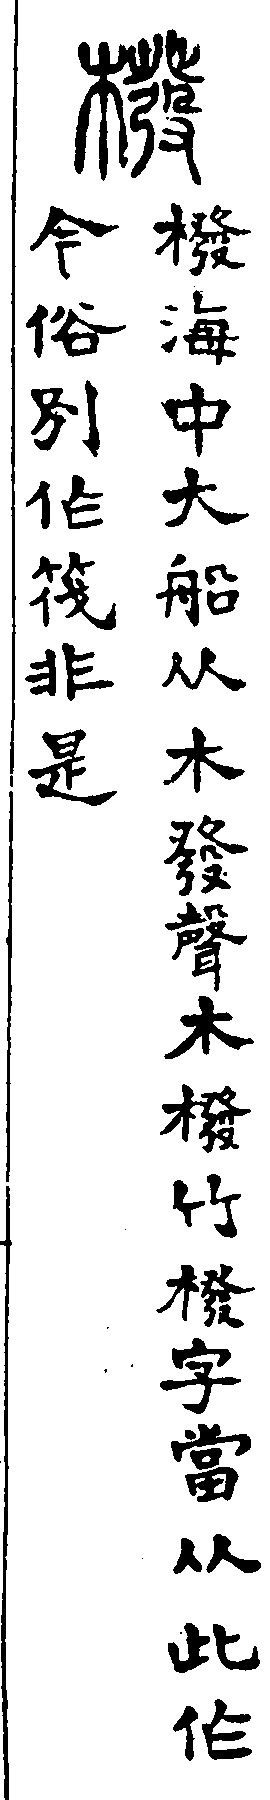 橃
橃海中大船从木發聲木橃竹橃字當从此作
今俗別作筏非是